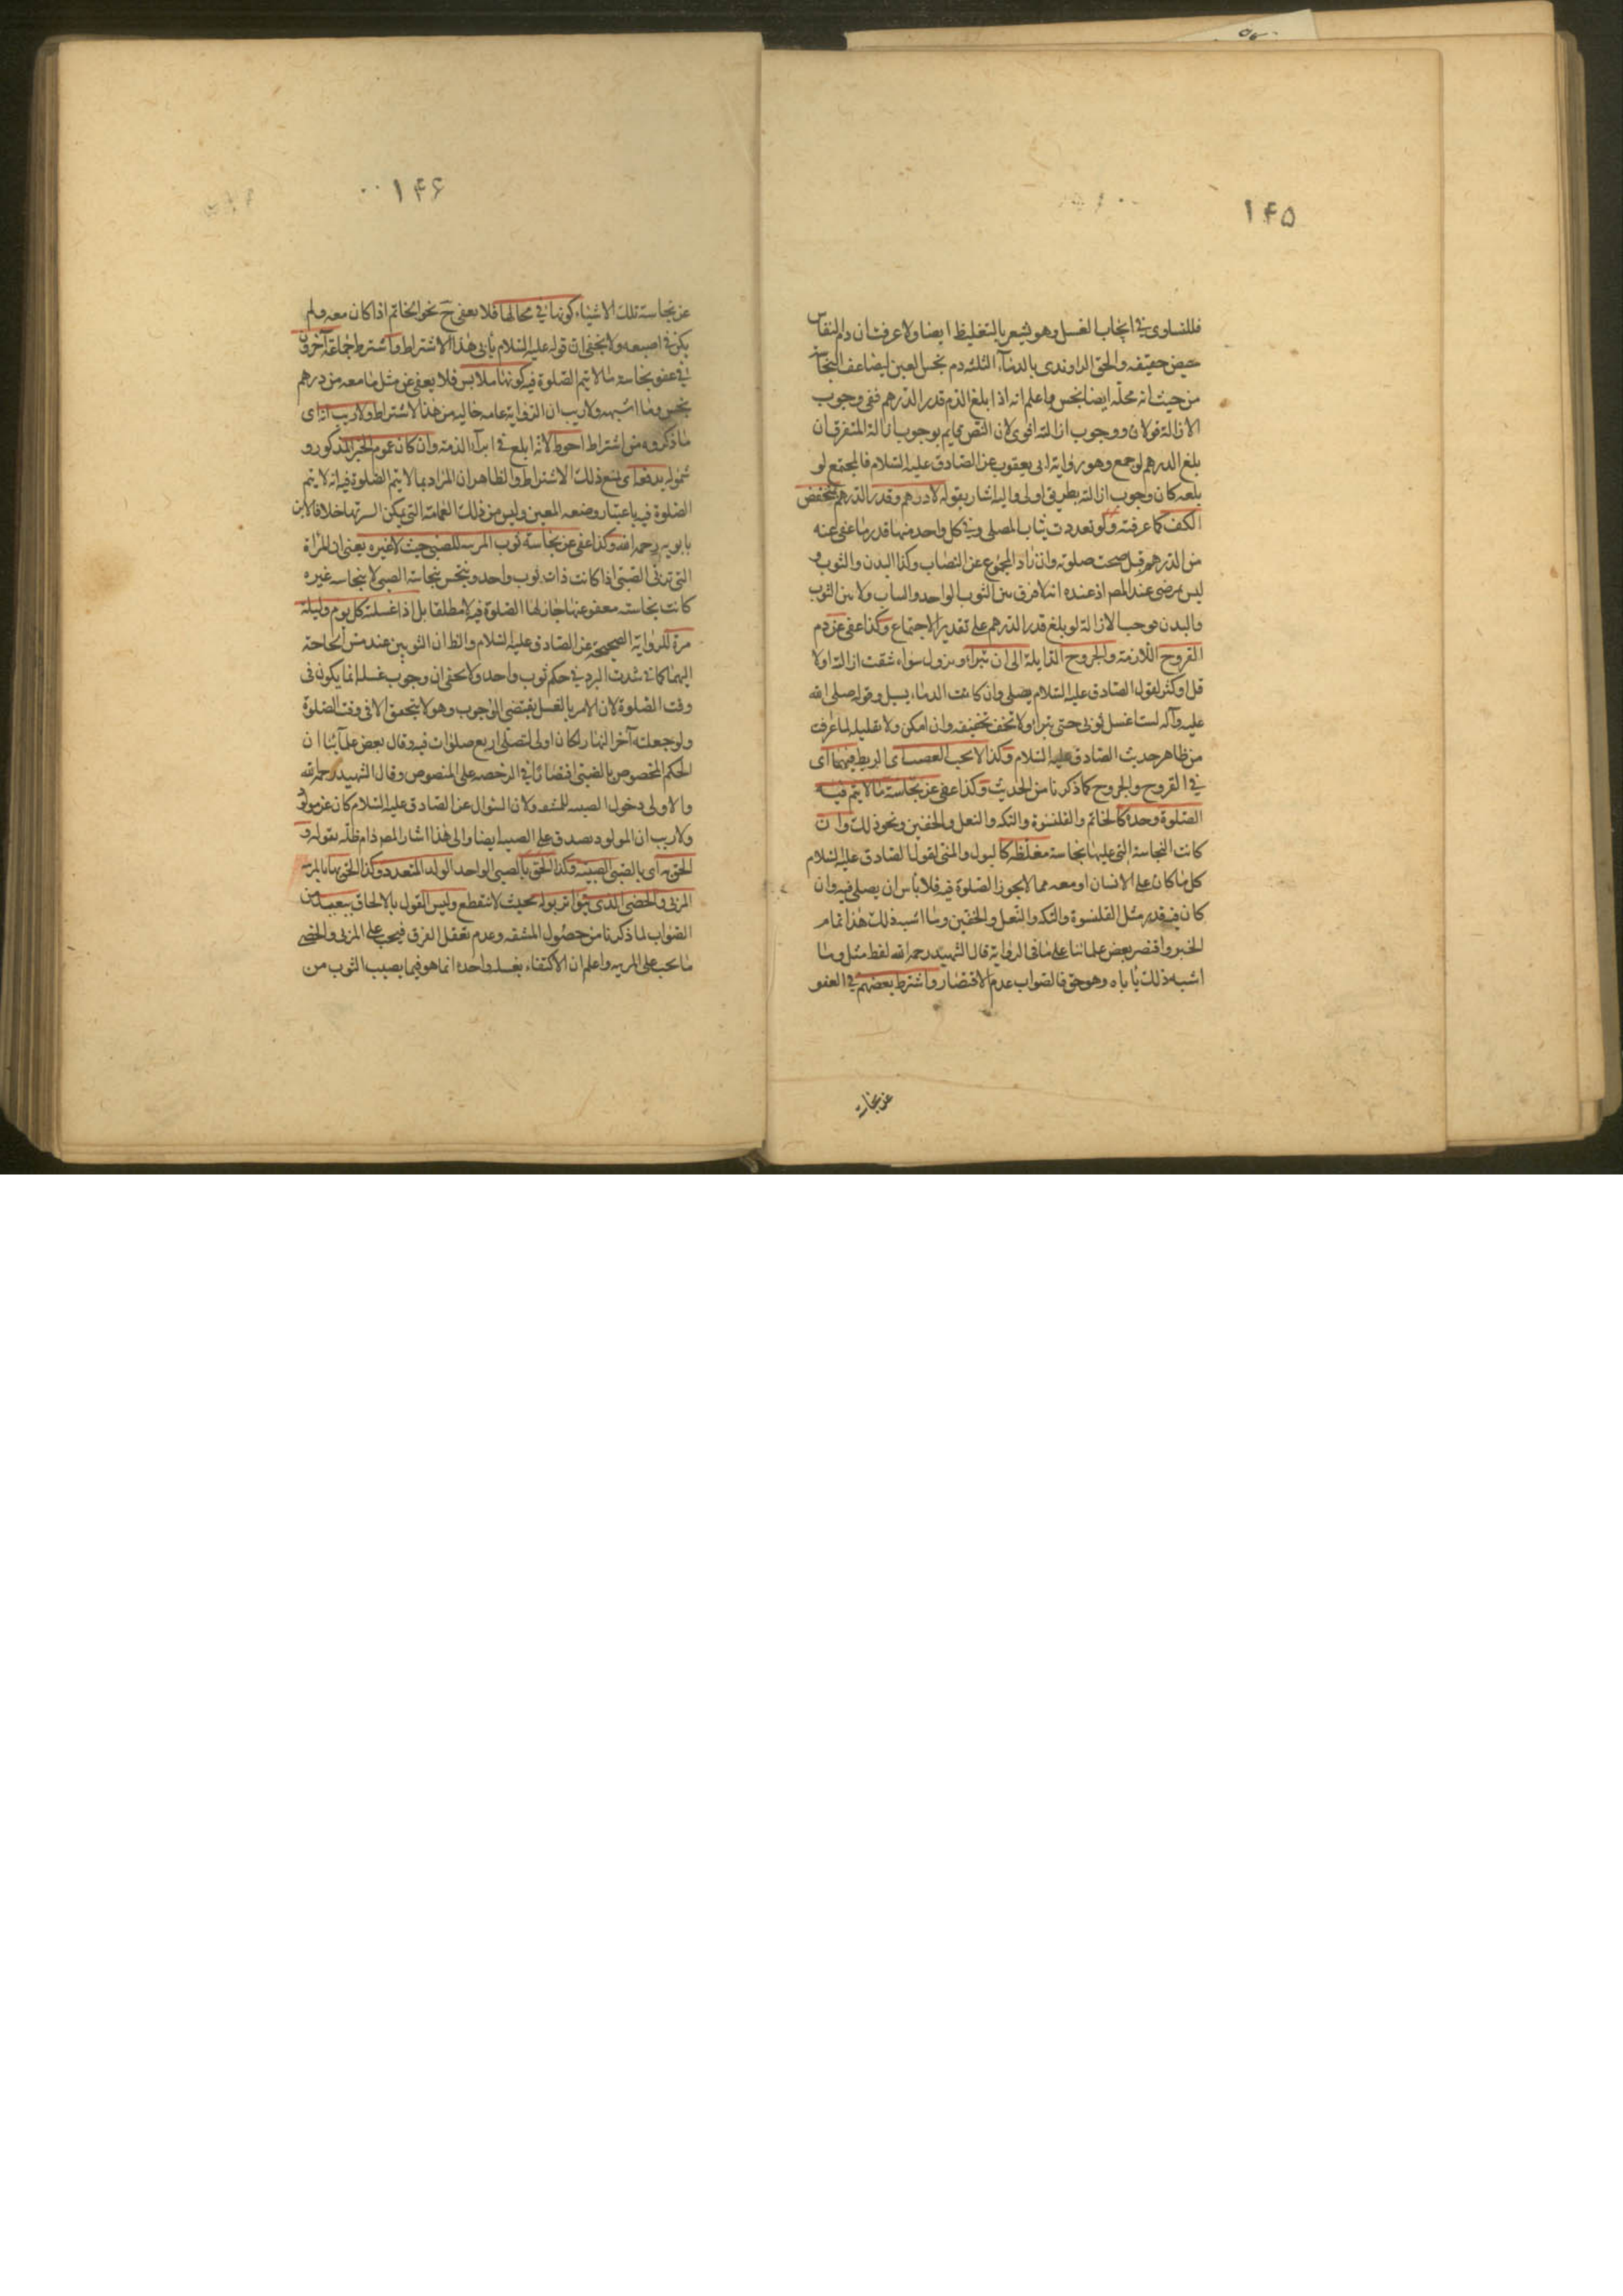 ۱۴۵
فللتساوى فى ايجاب الغسل وهو يشعر بالتغليظ ايضا ولا عرفت ان دم النفاس
حيض حقيقه والحق الراوندى بالدماء الثلثه دم نجس العين لتضاعف النجاسة
من حيث انه محله ايضا نجس واعلم انه اذا بلغ الدم قدر الدرهم ففى وجوب
الازالة قولان ووجوب ازالته اقوى لان النص بوجوب ازالة المتفرق ان
بلغ الدرهم لو جمع وهو رواية ابى يعقوب عن الصادق عليه السلام فالمجتمع لو
بلغه كان وجوب ازالته بطريق اولى واليه اشار بقوله لا درهم وقدر الدرهم بمنخفض
الكف كما عرفته ولو تعددت ثياب المصلى وفى كل واحد منها قدر ما عفى عنه
من الدرهم قيل صحت صلوته وان زاد المجموع عن النصاب وكذا البدن والثوب و
ليس بمرضى عند المصر اذ عنده انه لا فرق بين الثوب الواحد والثياب ولا بين الثوب
والبدن موجبا لازالة لو بلغ قدر الدرهم على تقدير الاجتماع وكذا عفى عن دم
القروح اللازمة والجروح السايلة الى ان تبراء ويزول سواء شقت ازالته اولا
قل او كثر لقول الصادق عليه السلام يصلى وان كانت الدماء يسيل وقوله صلى الله
عليه وآله لست اغسل ثوبى حتى تبرا ولا تخف تخفيفه وان امكن ولا تقليله لما عرفت
من ظاهر حديث الصادق عليه السلام وكذا لا يجب العصب اى الربط فيهما اى
فى القروح والجروح كما ذكرنا من الحديث وكذا عفى عن نجاسة ما لا يتم فيه
الصلوة وحده كالخاتم والقلنسوة والتكه والنعل والخفين ونحو ذلك وان
كانت النجاسة التى عليها نجاسة مغلظه كالبول والمنى لقول الصادق عليه السلام
كل ما كان على الانسان او معه مما لا يجوز الصلوة فيه فلا باس ان يصلى فيه وان
كان فيه قذر مثل القلنسوة والتكه والنعل والخفين وما اشبه ذلك هذا تمام
الخبر واقتصر بعض علمائنا على ما فى الرواية قال الشهيد رحمه الله لفظ مثل وما
اشبه ذلك يأباه وهو حق فالصواب عدم الاقتصار واشترط بعضهم فى العفو
عن نجاسة
۱۴۶
عن نجاسة تلك الاشياء كونها فى محالها فلا يعفى ح نحو الخاتم اذا كان معه ولم
يكن فى اصبعه ولا يخفى ان قوله عليه السلام يأبى هذا الاشتراط واشترط جماعة آخرون
فى عفو نجاسة ما لا يتم الصلوة فيه كونها ملابس فلا يعفى عن مثل ما معه من درهم
نجس وما اشبهه ولا ريب ان الرواية عامه خاليه من هذا الاشتراط ولا ريب انه اى
ما ذكروه من اشتراط احوط لانه ابلغ فى ابراء الذمة وان كان عموم الخبر المذكور و
شموله يدفعه اى يمنع ذلك الاشتراط والظاهر ان المراد بما لا يتم الصلوة فيه انه لا يتم
الصلوة فيه باعتبار وضعه المعين وليس من ذلك العمامة التى يمكن الستر بها خلافا لابن
بابويه رحمه الله وكذا عفى عن نجاسة ثوب المربيه للصبى حيث لا غيره يعنى ان المراة
التى تربى الصبى اذا كانت ذات ثوب واحد وينجس بنجاسة الصبى لا بنجاسه غيره
كانت نجاسته معفو عنها جاز لها الصلوة فيه لا مطلقا بل اذا غسلته كل يوم وليلة
مرة للرواية الصحيحة عن الصادق عليه السلام والظ ان الثوبين عند مس الحاجة
اليهما كما فى شدت البرد فى حكم ثوب واحد ولا يخفى ان وجوب غسله انما يكون فى
وقت الصلوة لان الامر بالغسل يقتضى الوجوب وهو لا يتحقق الا فى وقت الصلوة
ولو جعلته آخر النهار لكان اولى لتصلى اربع صلوات فيه وقال بعض علمائنا ان
الحكم المخصوص بالصبى اقتصارا فى الرخصه على المنصوص وقال الشهيد رحمه الله
والاولى دخول الصبيه للمشقه ولان السؤال عن الصادق عليه السلام كان عن مولود
ولا ريب ان المولود يصدق على الصبيه ايضا والى هذا اشار المصر دام ظله بقوله و
الحق به اى بالصبى الصبيه وكذا الحق بالصبى الواحد الولد المتعدد وكذا الحق بها بالمربيه
المربى والخصى الذى يتواتر بوله بحيث لا ينقطع وليس القول بالالحاق ببعيد من
الصواب لما ذكرنا من حصول المشقه وعدم تعقل الفرق فيجب على المربى والخصى
ما يجب على المربيه واعلم ان الاكتفاء بغسله واحده انما هو فيما يصيب الثوب من